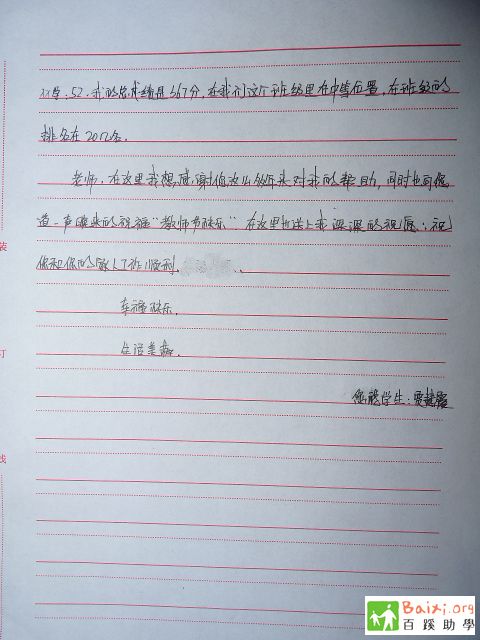 化学:52.我的总成绩是367分,在我们这个班级里在中等位置,在班级的
排名在20几名.
老师,在这里我想感谢您这么多年来对我的帮助,同时也向您
道一声迟来的祝福"教师节快乐"在这里也送上我深深的祝愿:祝
您和您的家人工作顺利、
幸福快乐.
生活美满.
您的学生:贾
装
订
线
Baixi.org
百蹊助學